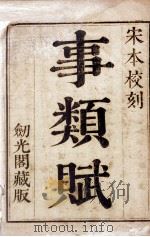 宋本校刻
事類賦
劒光閣藏版